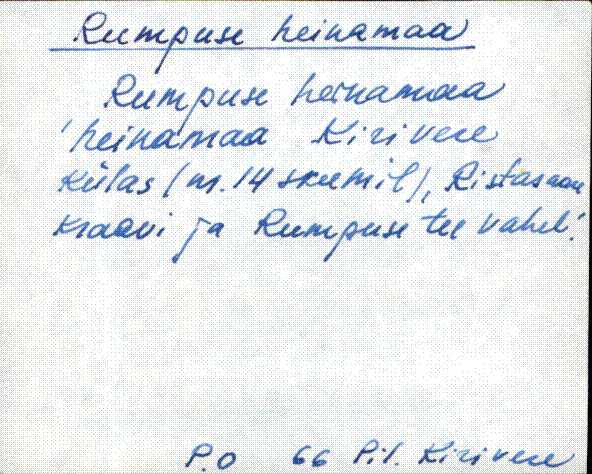 Rumpuse heinamaa
Rumpuse heinamaa
'heinamaa Kirivere
külas (nr. 14 skeemil), Ristasaare
kraavi ja Rumpuse tee vahel'.
P.O 66 Pil. Kirivere